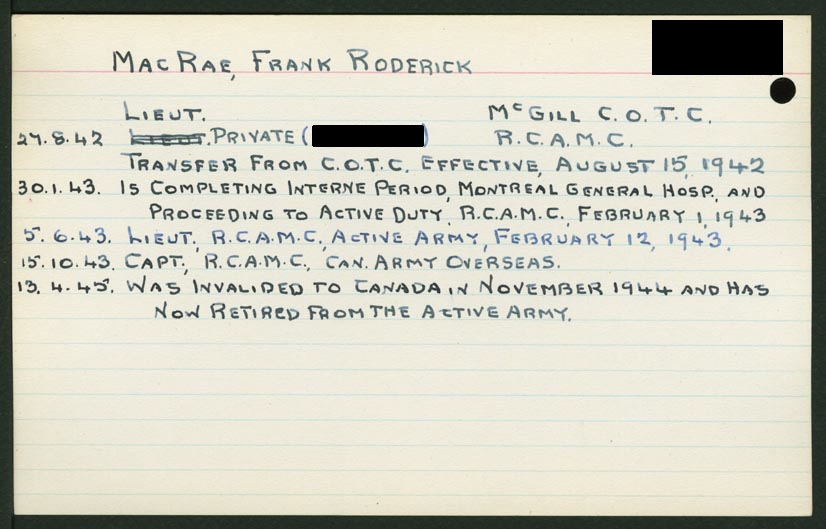 MacRae, Frank Roderick
Lieut. McGill C.O.T.C.
27.8.42 Lieut. Private ( ) R.C.A.M.C.
Transfer from C.O.T.C. effective, August 15, 1942
30.1.43. Is completing interne period, Montreal General Hosp., and
proceeding to active duty, R.C.A.M.C., February 1, 1943
5.6.43. Lieut., R.C.A.M.C., Active Army, February 12, 1943.
15.10.43. Capt., R.C.A.M.C., Can. Army Overseas.
13.4.45. Was invalided to Canada in November 1944 and has
now retired from the Active Army.